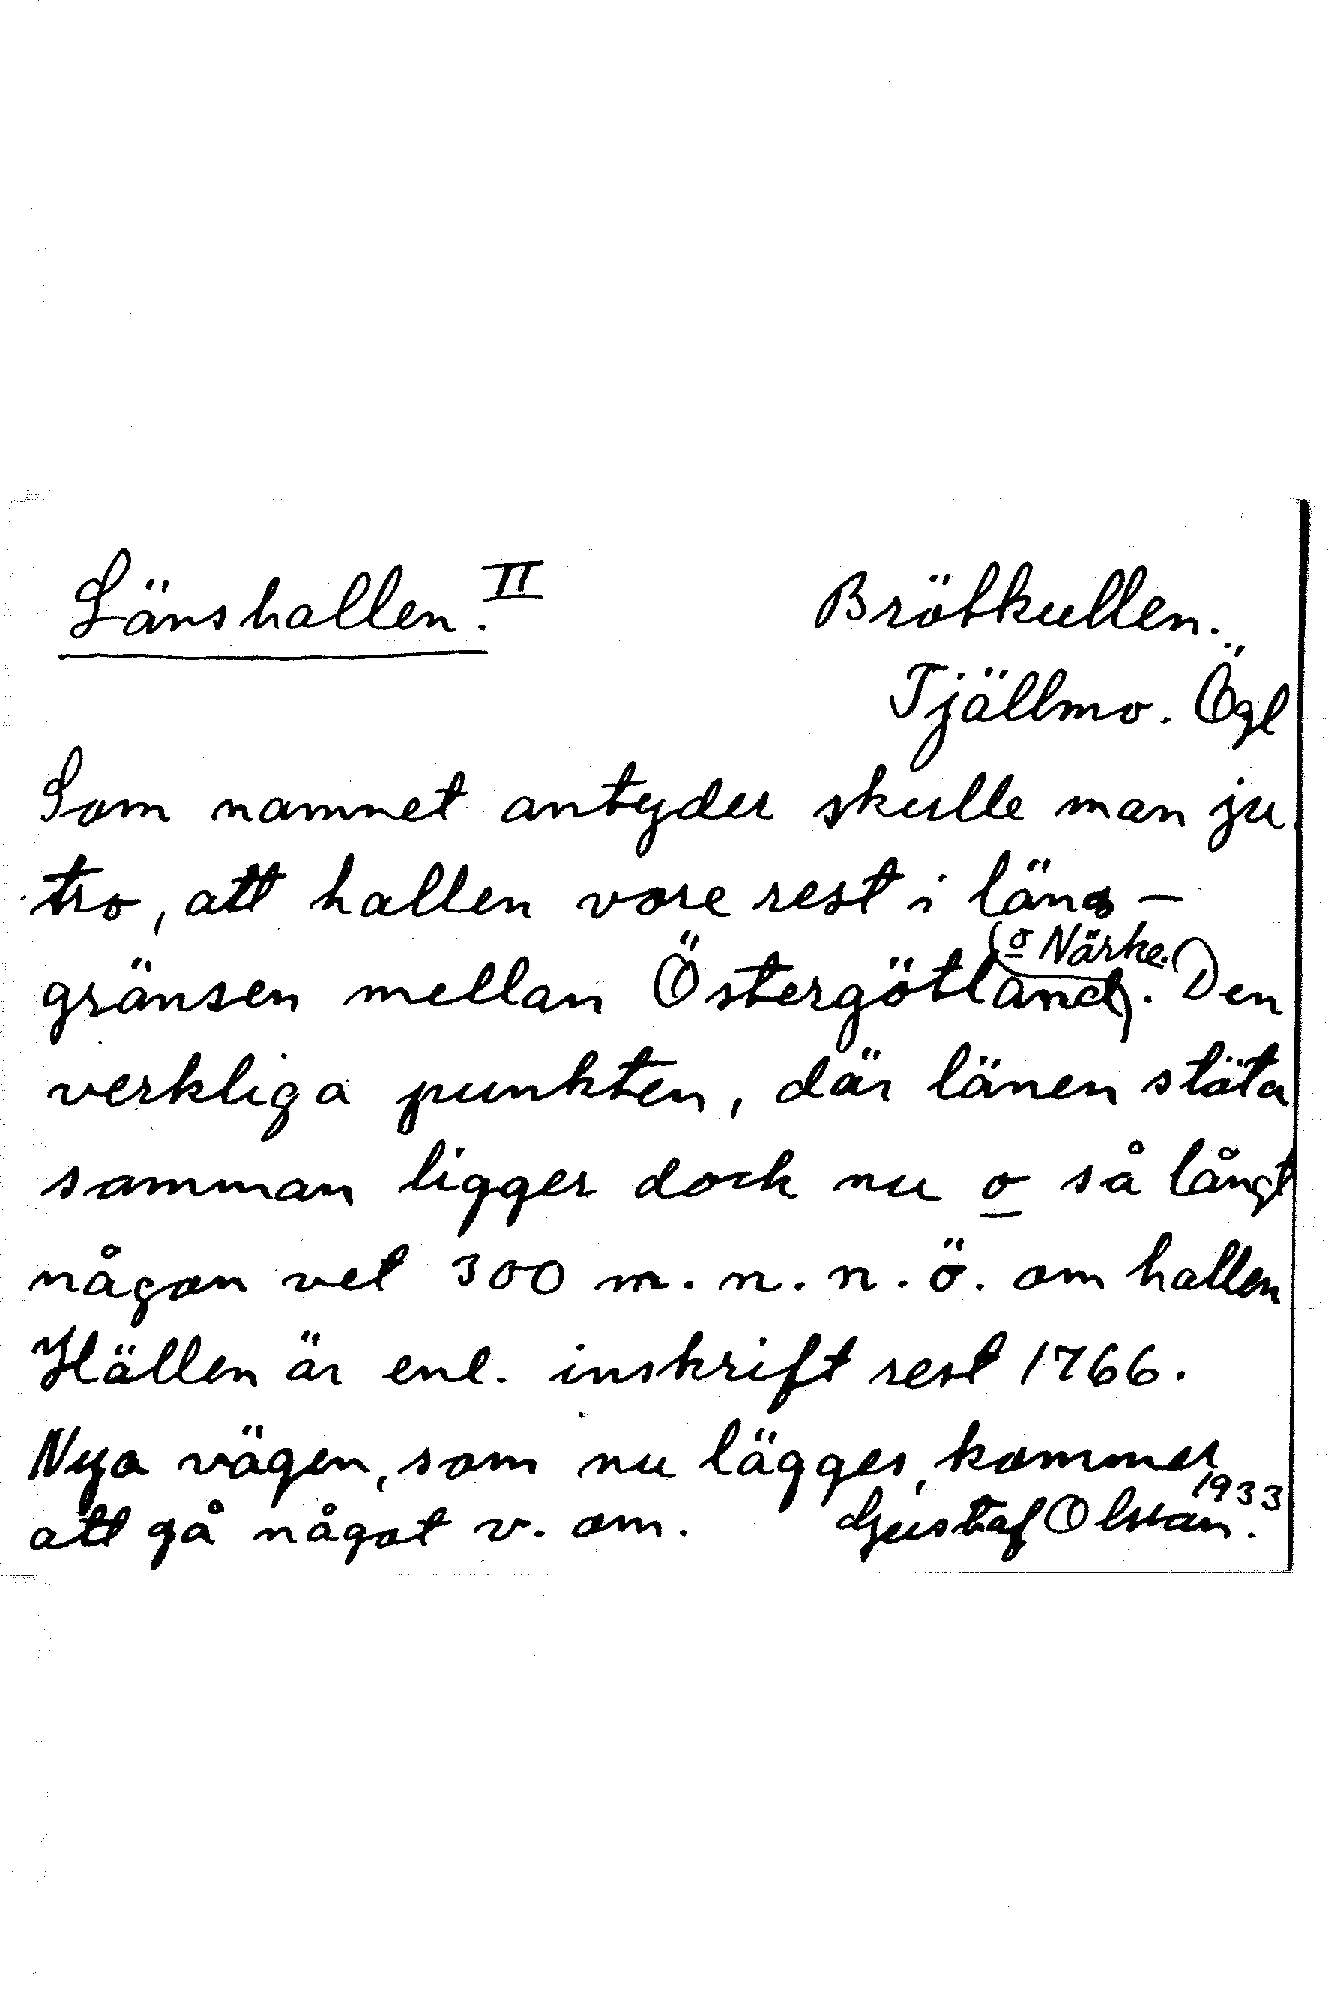 Länshallen. II
Brötkullen.
Tjällmo. Ögl
Som namnet antyder skulle man ju
tro, att hallen vore rest i läns-
gränsen mellan Östergötland o Närke. Den
verkliga punkten, där länen stöta
samman ligger dock nu o så långt
någon vet 300 m. n. n. ö. om hallen
Hällen är enl. inskrift rest 1766.
Nya vägen, som nu lägges, kommer
att gå något v. om. Gustaf Olsson. 1933